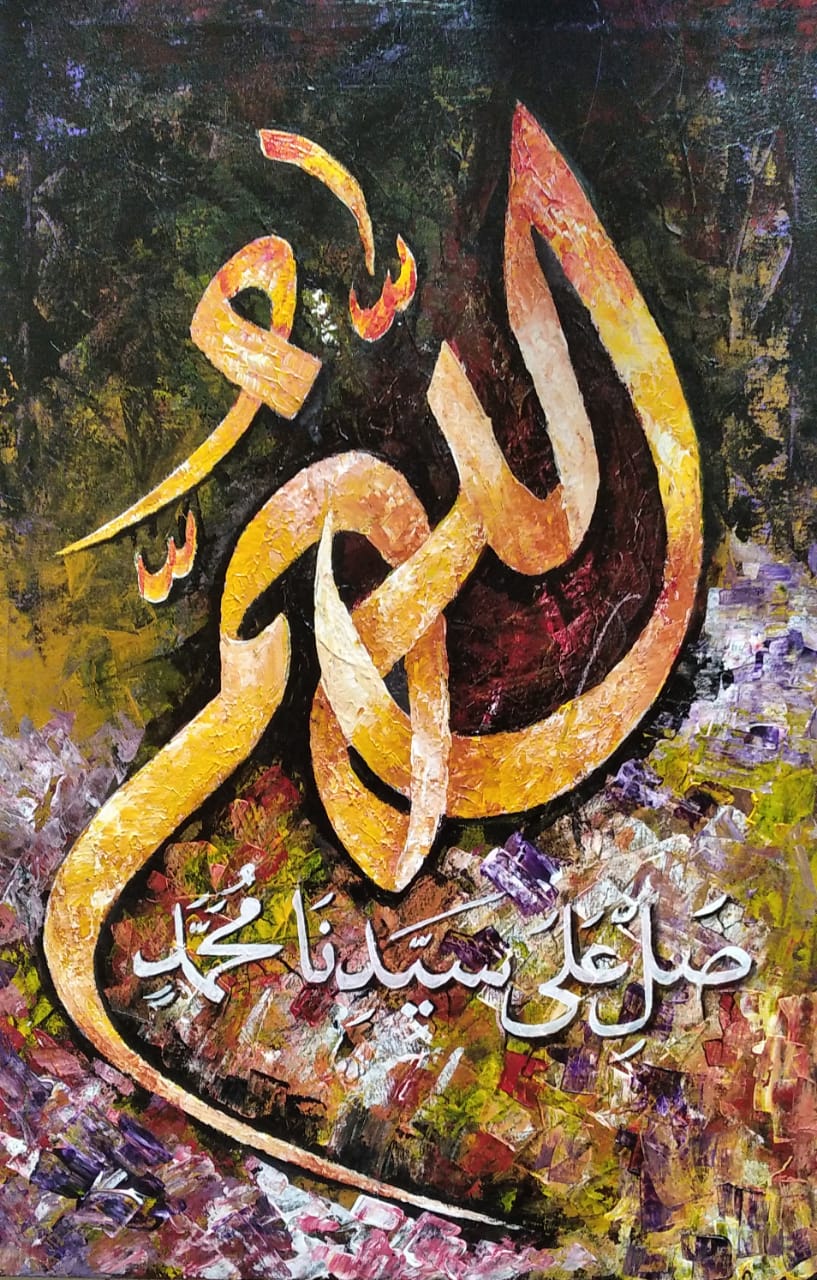 اللهم
صَلِّ عَلَى سَيِّدِنَا مُحَمَّدٍ